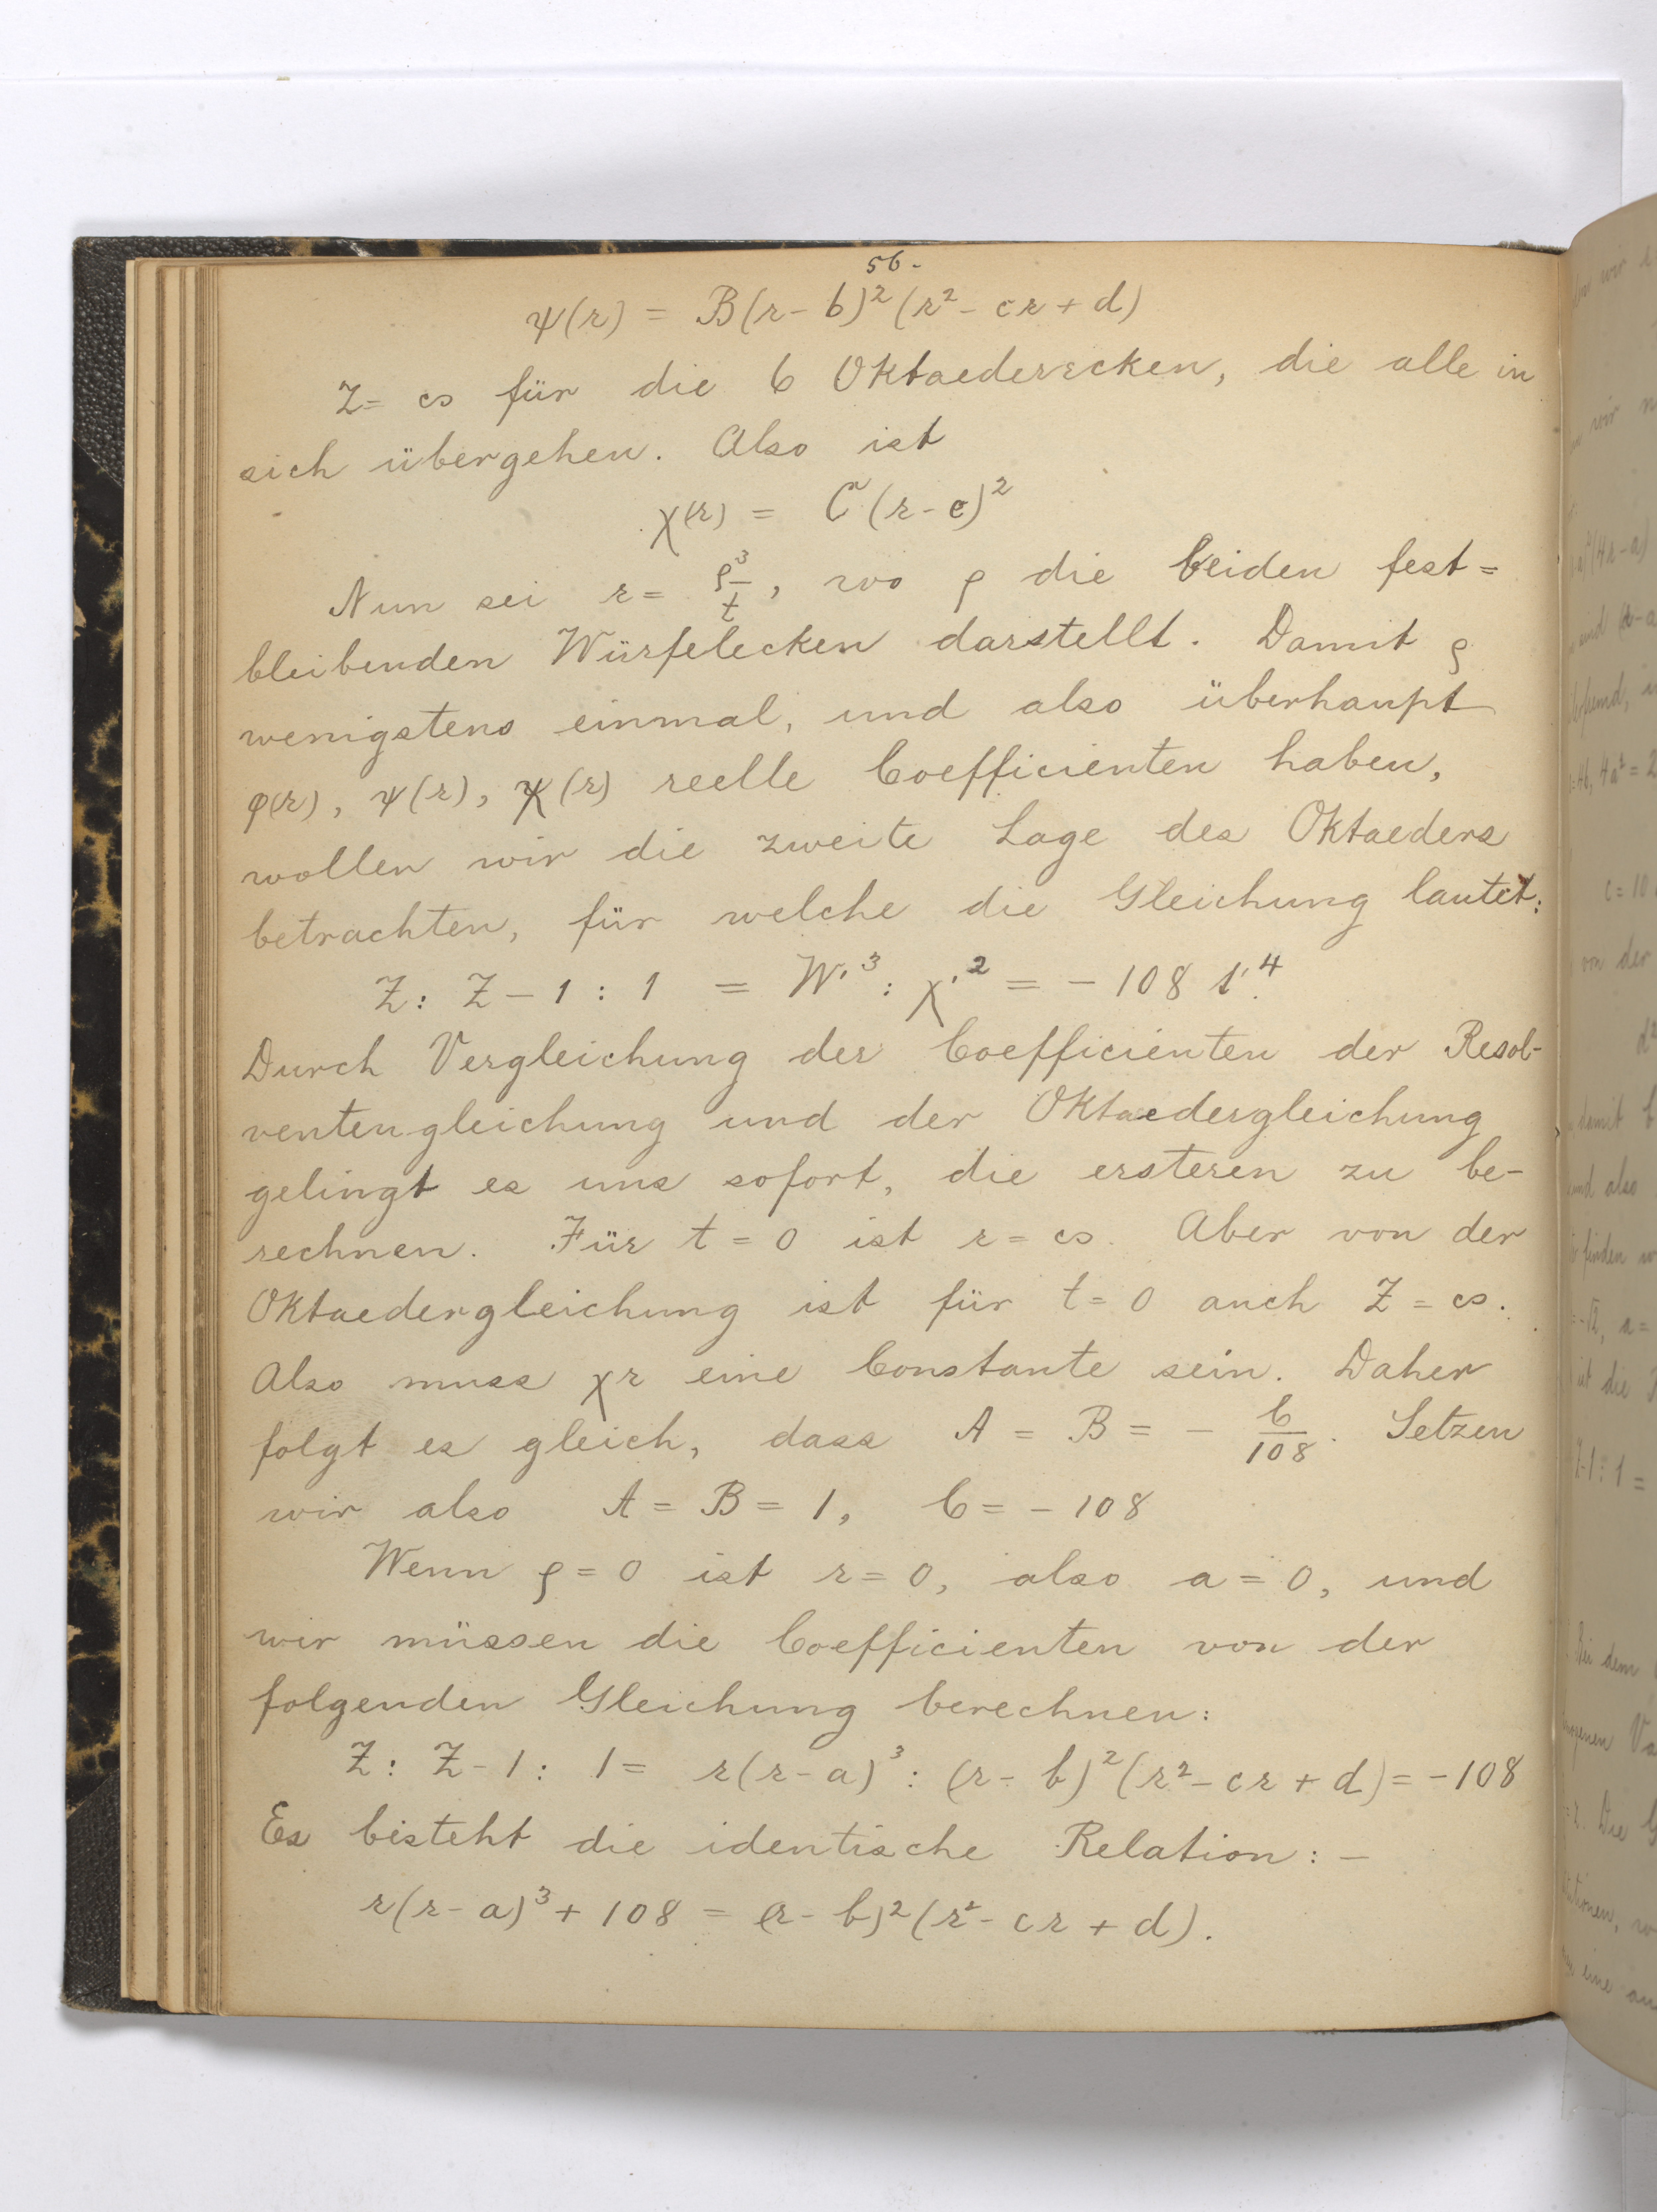 56.
ψ(r) = B(r-b)²(r²-cr+d)
Z = ∞ für die 6 Oktaederecken, die alle in
sich übergehen. Also ist
χ(r) = C(r-e)²
Nun sei r = ρ³/t, wo ρ die beiden fest=
bleibenden Würfelecken darstellt. Damit ρ
wenigstens einmal, und also überhaupt
φ(r), ψ(r), χ(r) reelle Coefficienten haben,
wollen wir die zweite Lage des Oktaeders
betrachten, für welche die Gleichung lautet:
Z : Z-1 : 1 = W'³ : χ'² = -108 t'⁴.
Durch Vergleichung der Coefficienten der Resol-
ventengleichung und der Oktaedergleichung
gelingt es uns sofort, die ersteren zu be-
rechnen. Für t = 0 ist r = ∞. Aber von der
Oktaedergleichung ist für t = 0 auch Z = ∞.
Also muss χr eine Constante sein. Daher
folgt es gleich, dass A = B = - C/108. Setzen
wir also A = B = 1, C = -108
Wenn ρ = 0 ist r = 0, also a = 0, und
wir müssen die Coefficienten von der
folgenden Gleichung berechnen:
Z : Z-1 : 1 = r(r-a)³ : (r-b)²(r²-cr+d) = -108
Es bisteht die identische Relation: -
r(r-a)³ + 108 = (r-b)²(r²-cr+d).